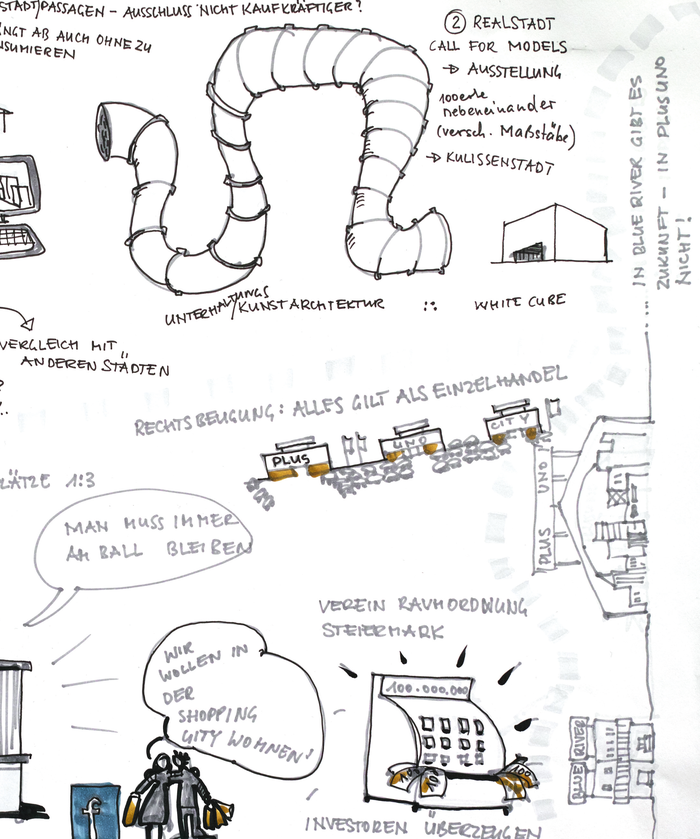 STADT)PASSAGEN – AUSSCHLUSS NICHT KAUFKRÄFTIGER?
NGT AB AUCH OHNE ZU
NSUMIEREN
② REALSTADT
CALL FOR MODELS
→ AUSSTELLUNG
100erte
nebeneinander
(versch. Maßstäbe)
→ KULISSENSTADT
UNTERHALTUNGS
/KUNSTARCHITEKTUR :: WHITE CUBE
VERGLEICH MIT
ANDEREN STÄDTEN
?
..
.... IN BLUE RIVER GIBT ES
ZUKUNFT – IN PLUS UNO
NICHT!
RECHTSBEUGUNG: ALLES GILT ALS EINZELHANDEL
PLUS
UNO
CITY
PLUS UNO
LÄTZE 1:3
MAN MUSS IMMER
AM BALL BLEIBEN
VEREIN RAUMORDNUNG
STEIERMARK
WIR
WOLLEN IN
DER
SHOPPING
CITY WOHNEN!
100.000.000
100
100
BLUE RIVER
f
INVESTOREN ÜBERZEUGEN